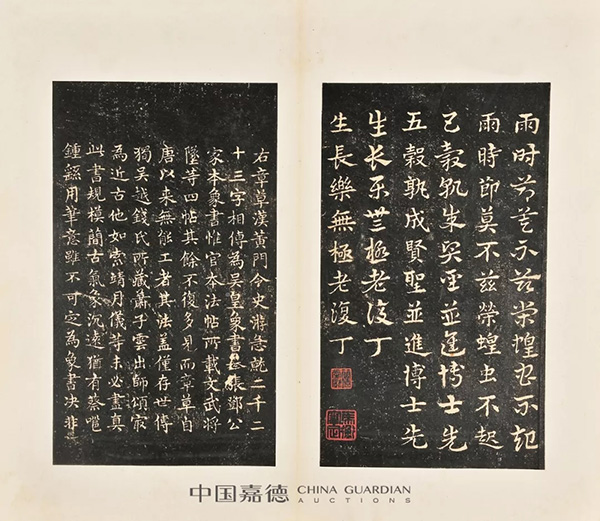 雨時節莫不兹榮蝗虫不起
雨時節莫不兹榮蝗虫不起
五穀孰成賢聖並進博士先
五穀孰成賢聖並進博士先
生長樂無極老復丁
生長樂無極老復丁
右章草漢黄門令史游急就二千二
十三字相傳為吳皇象書張鄧公
家本象書惟官本法帖所載文武將
隊等四帖其餘不復多見而章草自
唐以來無能工者其法蓋僅存世傳
獨吳越錢氏所藏蕭子雲出師頌㝡
為近古他如索靖月儀等未必盡真
此書規模簡古氣象沉遠猶有蔡邕
鍾繇用筆意雖不可定為象書决非
中国嘉德 CHINA GUARDIAN
AUCTIONS